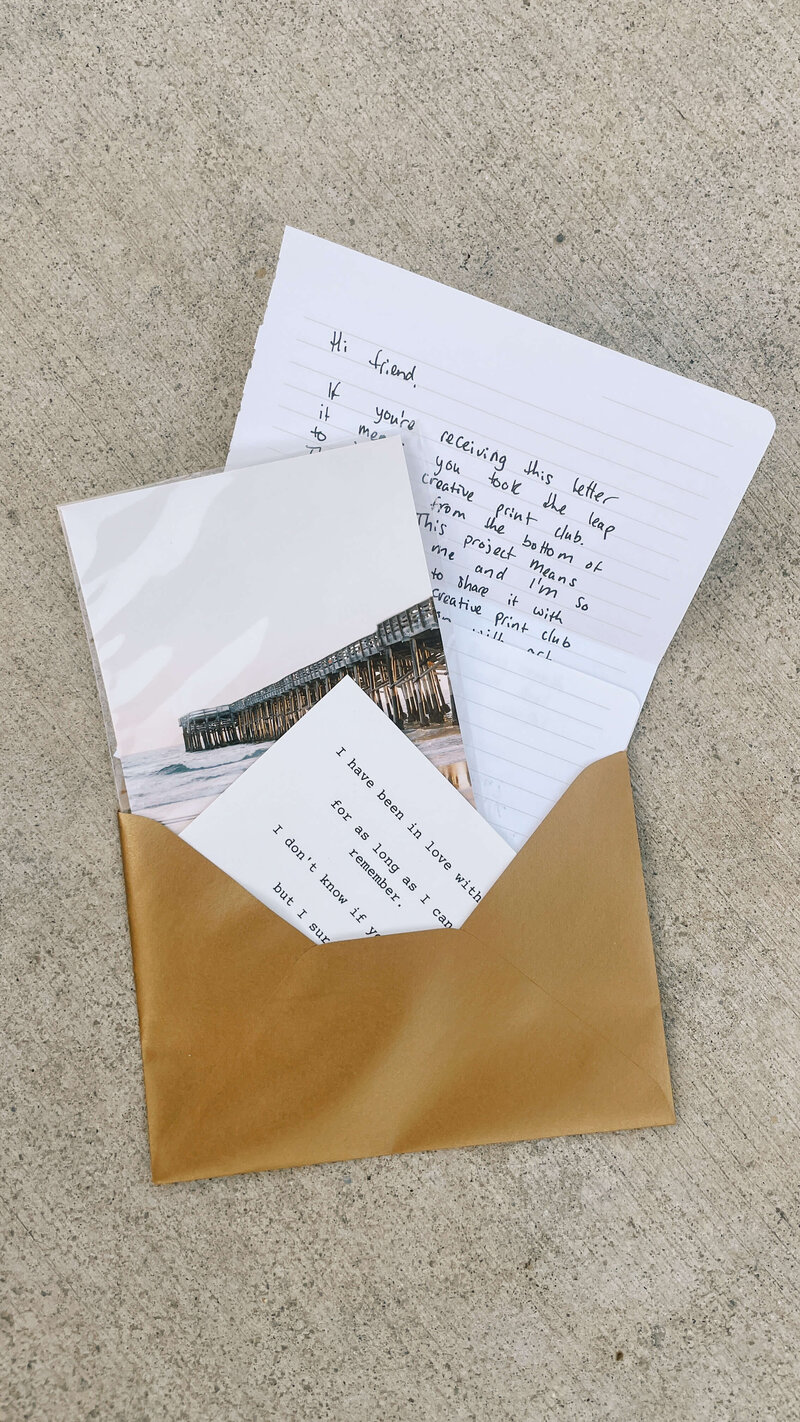 Hi friend,
If you're receiving this letter
it you took the leap
to creative print club.
from the bottom of
This project means
me and I'm so
to share it with
creative print club
with
I have been in love with
for as long as I can
remember.
I don't know if
but I